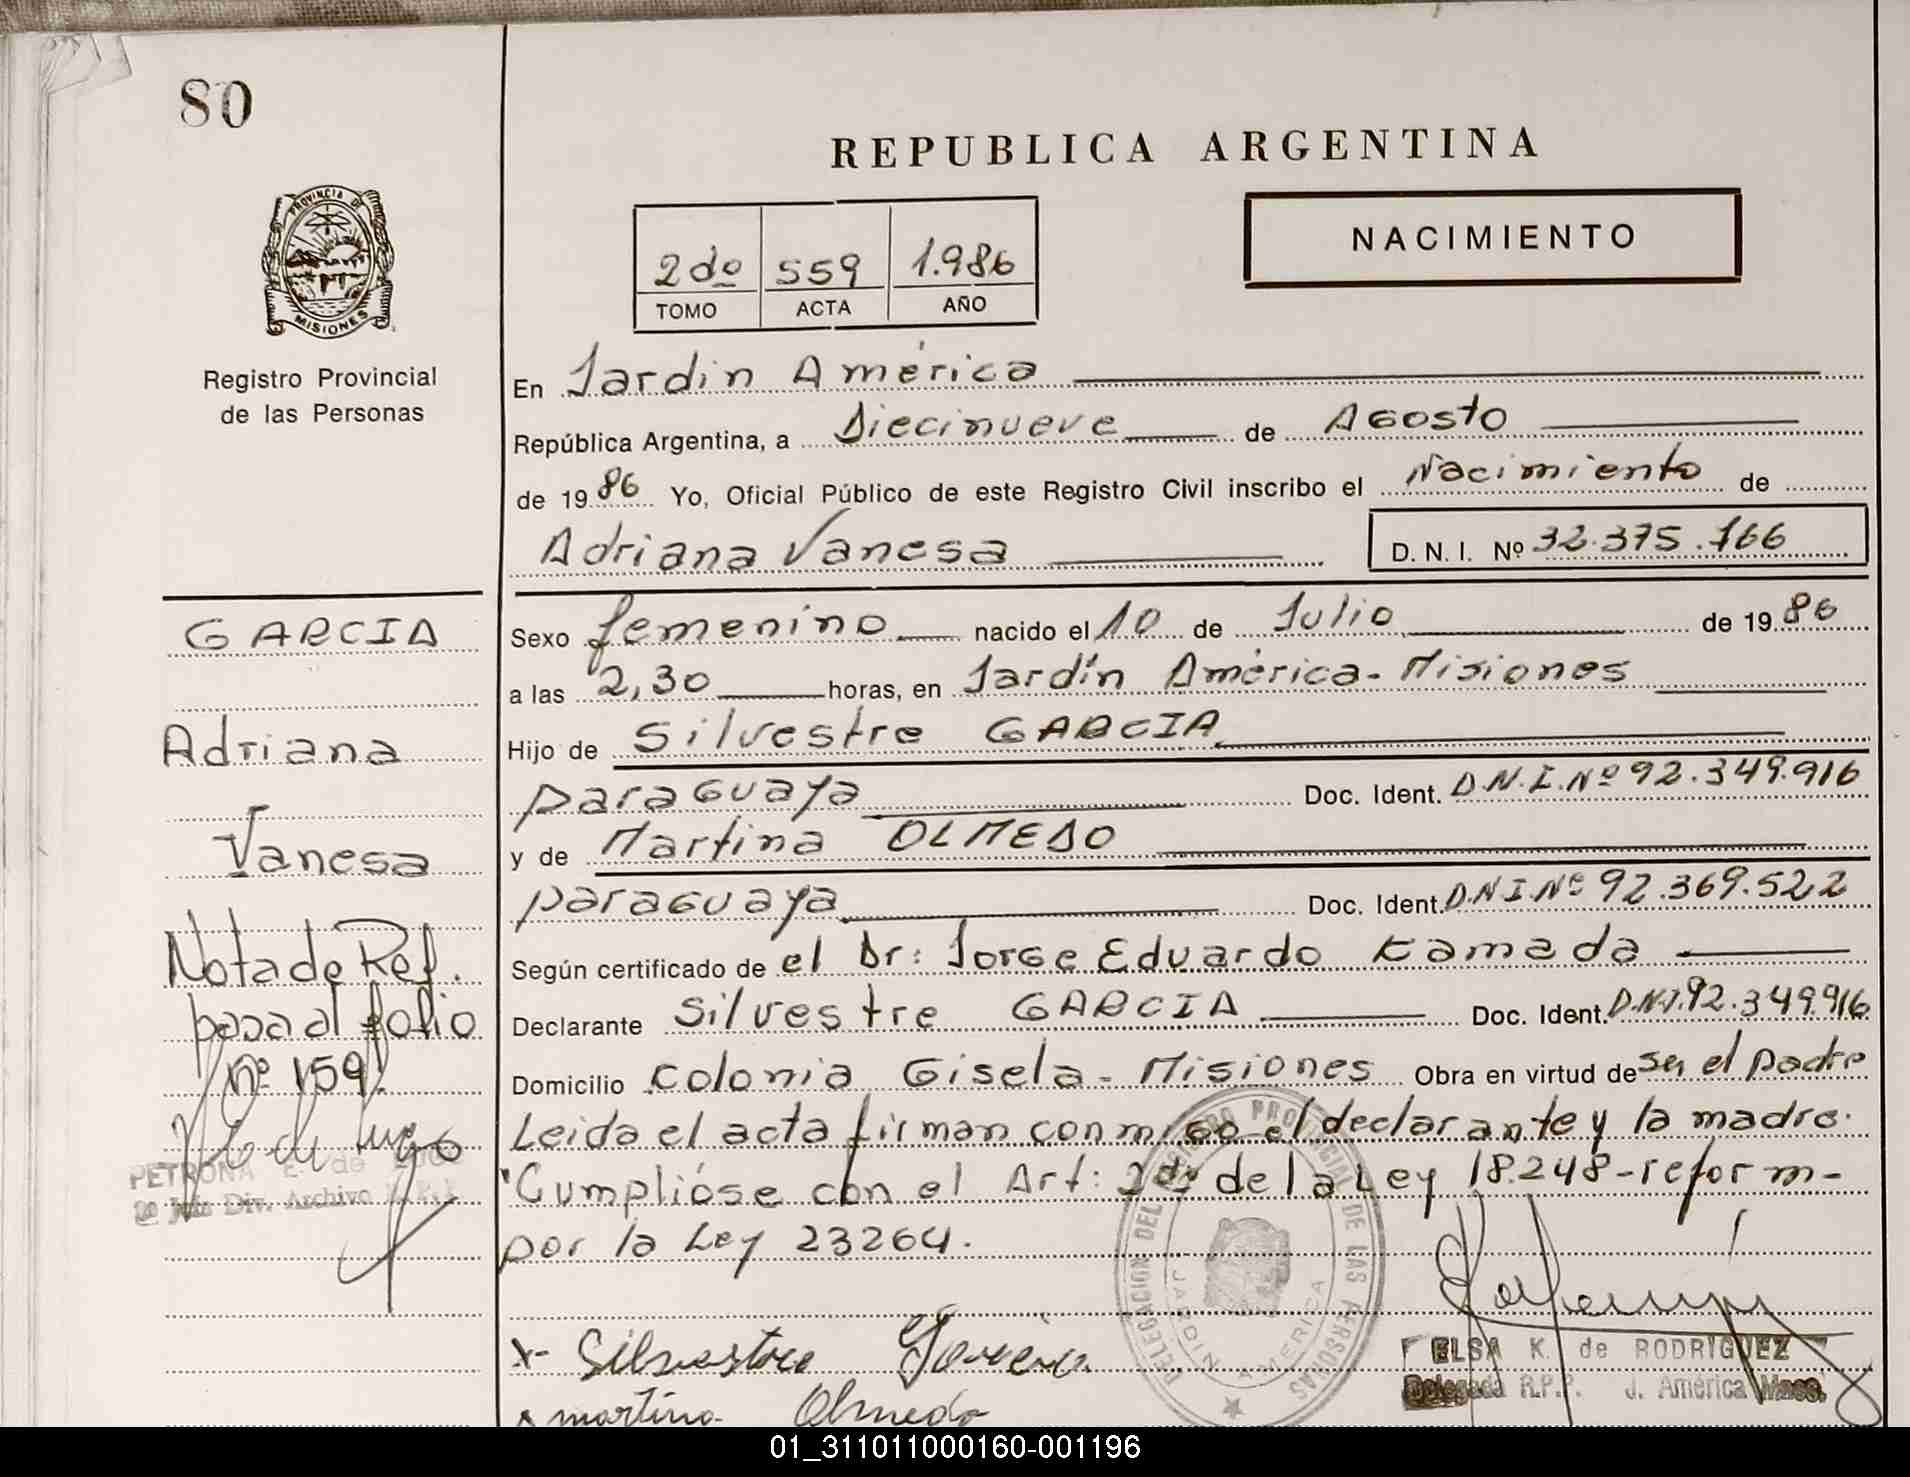 80
REPUBLICA ARGENTINA
PROVINCIA DE
MISIONES
Registro Provincial
de las Personas
2do 559 1.986
TOMO ACTA AÑO
NACIMIENTO
En Jardin América
República Argentina, a Diecinueve de Agosto
de 1986 Yo, Oficial Público de este Registro Civil inscribo el Nacimiento de
Adriana Vanesa D. N. I. Nº 32.375.166
Sexo femenino nacido el 10 de Julio de 1986
a las 2,30 horas, en Jardín América - Misiones
Hijo de Silvestre GARCIA
paraguaya Doc. Ident. D.N.I.Nº 92.349.916
y de Martina OLMEDO
paraguaya Doc. Ident. D.N.I.Nº 92.369.522
Según certificado de el Dr: Jorge Eduardo Kamada
Declarante Silvestre GARCIA Doc. Ident. D.N.I. 92.349.916
Domicilio Colonia Gisela - Misiones Obra en virtud de ser el padre
Leida el acta firman conmigo el declarante y la madre.
Cumplióse con el Art: 2do de la Ley 18.248 - reform-
por la Ley 23264.
GARCIA
Adriana
Vanesa
Nota de Ref.
pasa al folio
nº 159
PETRONA E. de
Div. Archivo
DELEGACION DEL REGISTRO PROVINCIAL DE LAS PERSONAS
JARDIN AMERICA
x- Silvestre Garcia
x martina Olmedo
ELSA K. de RODRIGUEZ
Delegada R.P.P. J. América Mnes.
01_311011000160-001196